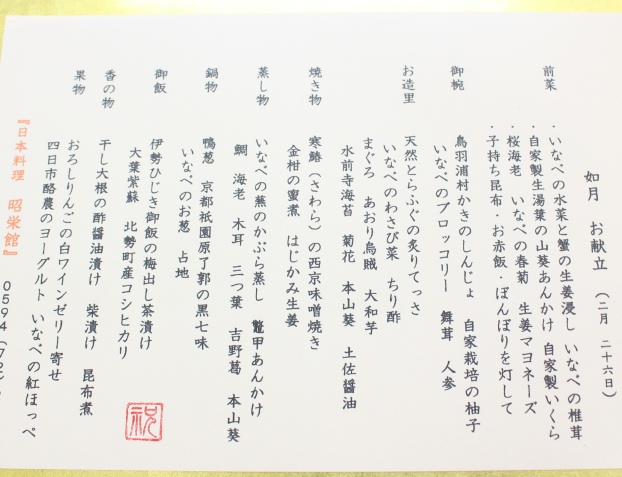 如月 お献立 (二月 二十六日)
前菜
・いなべの水菜と蟹の生姜浸し いなべの椎茸
・自家製生湯葉の山葵あんかけ 自家製いくら
・桜海老 いなべの春菊 生姜マヨネーズ
・子持ち昆布・お赤飯・ぼんぼりを灯して
御椀
鳥羽浦村かきのしんじょ 自家栽培の柚子
いなべのブロッコリー 舞茸 人参
お造里
天然とらふぐの炙りてっさ
いなべのわさび菜 ちり酢
まぐろ あおり烏賊 大和芋
水前寺海苔 菊花 本山葵 土佐醤油
焼き物
寒鰆(さわら)の西京味噌焼き
金柑の蜜煮 はじかみ生姜
蒸し物
いなべの蕪のかぶら蒸し 鼈甲あんかけ
鯛 海老 木耳 三つ葉 吉野葛 本山葵
鍋物
鴨葱 京都祇園原了郭の黒七味
いなべのお葱 占地
御飯
伊勢ひじき御飯の梅出し茶漬け
大葉紫蘇 北勢町産コシヒカリ
香の物
干し大根の酢醤油漬け 柴漬け 昆布煮
果物
おろしりんごの白ワインゼリー寄せ
四日市酪農のヨーグルト いなべの紅ほっぺ
『日本料理 昭栄館』
0594(72
祝